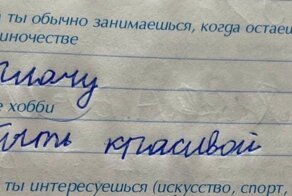 а ты обычно занимаешься, когда остаеш
диночестве
плачу
е хобби
быть красивой
ты интересуешься (искусство, спорт,